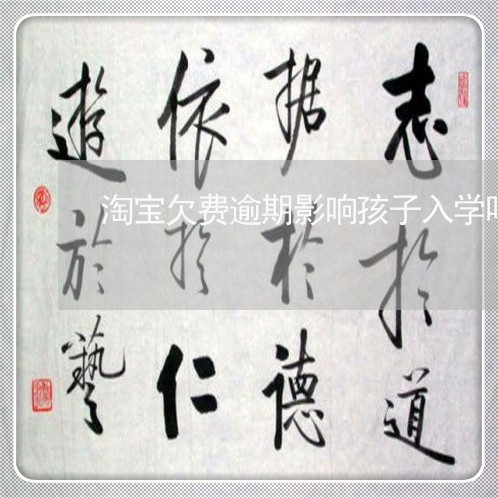 志於道
据於德
依於仁
遊於藝
淘宝欠费逾期影响孩子入学